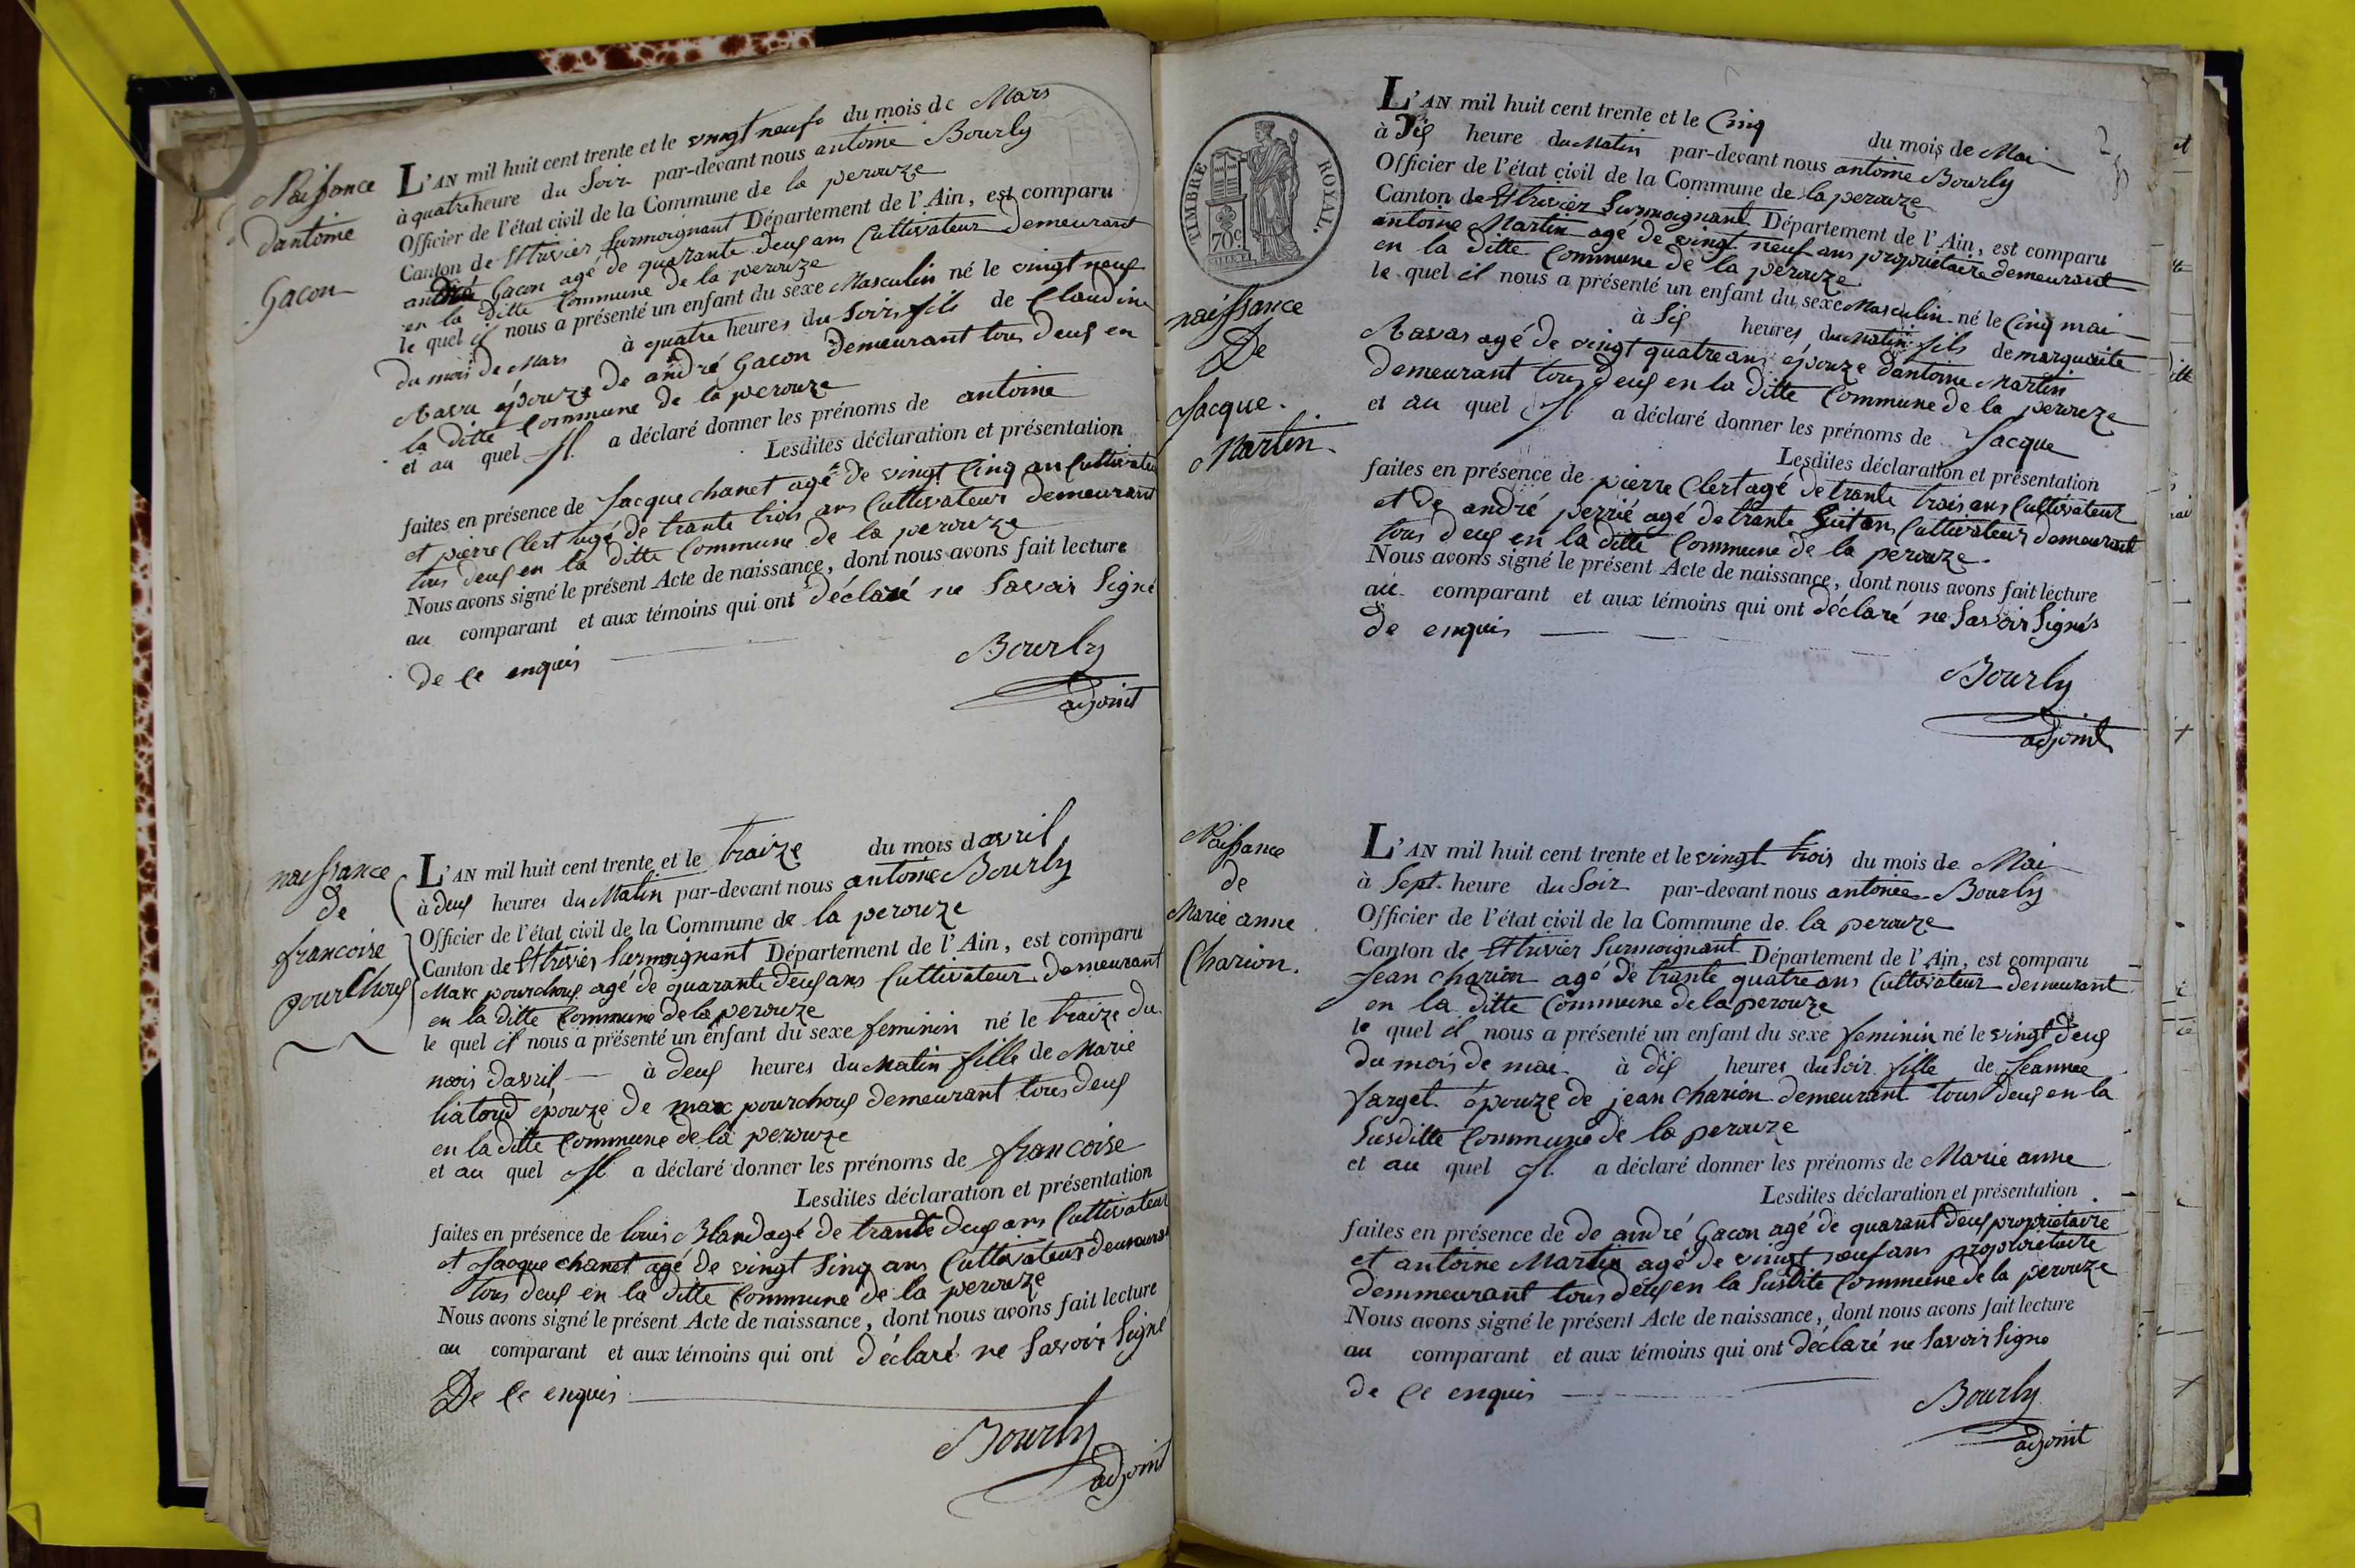 Naissance
dantoine
Gacon
L'AN mil huit cent trente et le vingt neuf du mois de Mars
à quatre heure du Soir par-devant nous antoine Bourly
Officier de l'état civil de la Commune de la perouze
Canton de St trivier Surmoignant Département de l'Ain, est comparu
andré Gacon agé de quarante deux ans Cultivateur demeurant
en la ditte Commune de la perouze
le quel il nous a présenté un enfant du sexe Masculin né le vingt neuf
du mois de Mars à quatre heures du Soir fils de Claudine
épouze de andré Gacon demeurant tous deux en
la ditte Commune de la perouze
et au quel Il a déclaré donner les prénoms de antoine
Lesdites déclaration et présentation
faites en présence de Jacque chanet agé de vingt Cinq an Cultivateur
et pierre Clert agé de trante trois ans Cultivateur demeurant
tous deux en la ditte Commune de la perouze
Nous avons signé le présent Acte de naissance, dont nous avons fait lecture
au comparant et aux témoins qui ont déclaré ne Savoir Signé
de Ce enquis
Bourly
adjoint
naissance
de
francoise
pourchoux
L'AN mil huit cent trente et le traize du mois davril
à deux heures du Matin par-devant nous antoine Bourly
Officier de l'état civil de la Commune de la perouze
Canton de St trivier Surmoignant Département de l'Ain, est comparu
Marc pourchoux agé de quarante deux ans Cultivateur demeurant
en la ditte Commune de la perouze
le quel il nous a présenté un enfant du sexe feminin né le traize du
mois davril à deux heures du Matin fille de Marie
liatoud épouze de marc pourchoux demeurant tous deux
en la ditte Commune de la perouze
et au quel Il a déclaré donner les prénoms de francoise
Lesdites déclaration et présentation
faites en présence de louis Bland agé de trante deux ans Cultivateur
et Jacque chanet agé de vingt Sinq ans Cultivateur demeurant
tous deux en la ditte Commune de la perouze
Nous avons signé le présent Acte de naissance, dont nous avons fait lecture
au comparant et aux témoins qui ont déclaré ne Savoir Signé
De Ce enquis
Bourly
adjoint
TIMBRE ROYAL.
70c
naissance
De
Jacque
Martin
L'AN mil huit cent trente et le Cinq du mois de Mai
à Dix heure du Matin par-devant nous antoine Bourly
Officier de l'état civil de la Commune de la perouze
Canton de St trivier Surmoignant Département de l'Ain, est comparu
antoine Martin agé de vingt neuf ans propriétaire demeurant
en la ditte Commune de la perouze
le quel il nous a présenté un enfant du sexe Masculin né le Cinq mai
à Six heures du Matin fils de marguerite
agé de vingt quatre ans épouze dantoine Martin
demeurant tous deux en la ditte Commune de la perouze
et au quel Il a déclaré donner les prénoms de Jacque
Lesdites déclaration et présentation
faites en présence de pierre Clert agé de trante trois ans Cultivateur
et de andré perrié agé de trante huit ans Cultivateur demeurant
tous deux en la ditte Commune de la perouze.
Nous avons signé le présent Acte de naissance, dont nous avons fait lecture
au comparant et aux témoins qui ont déclaré ne Savoir Signés
de enquis
Bourly
adjoint
Naissance
de
Marie anne
Charion.
L'AN mil huit cent trente et le vingt trois du mois de Mai
à Sept heure du Soir par-devant nous antoine Bourly
Officier de l'état civil de la Commune de la perouze
Canton de St trivier Surmoignant Département de l'Ain, est comparu
Jean charion agé de trante quatre ans Cultivateur demeurant
en la ditte Commune de la perouze
le quel il nous a présenté un enfant du sexe feminin né le vingt deux
du mois de mai à dix heures du Soir fille de Jeannee
farget épouze de jean charion demeurant tous deux en la
Susditte Commune de la perouze
et au quel Il a déclaré donner les prénoms de Marie anne
Lesdites déclaration et présentation
faites en présence de de andré Gacon agé de quarant deux propriétaire
et antoine Martin agé de vingt neuf ans propriétaire
demmeurant tous deux en la Susdite Commune de la perouze
Nous avons signé le présent Acte de naissance, dont nous avons fait lecture
au comparant et aux témoins qui ont déclaré ne Savoir Signe
de Ce enquis
Bourly
adjoint